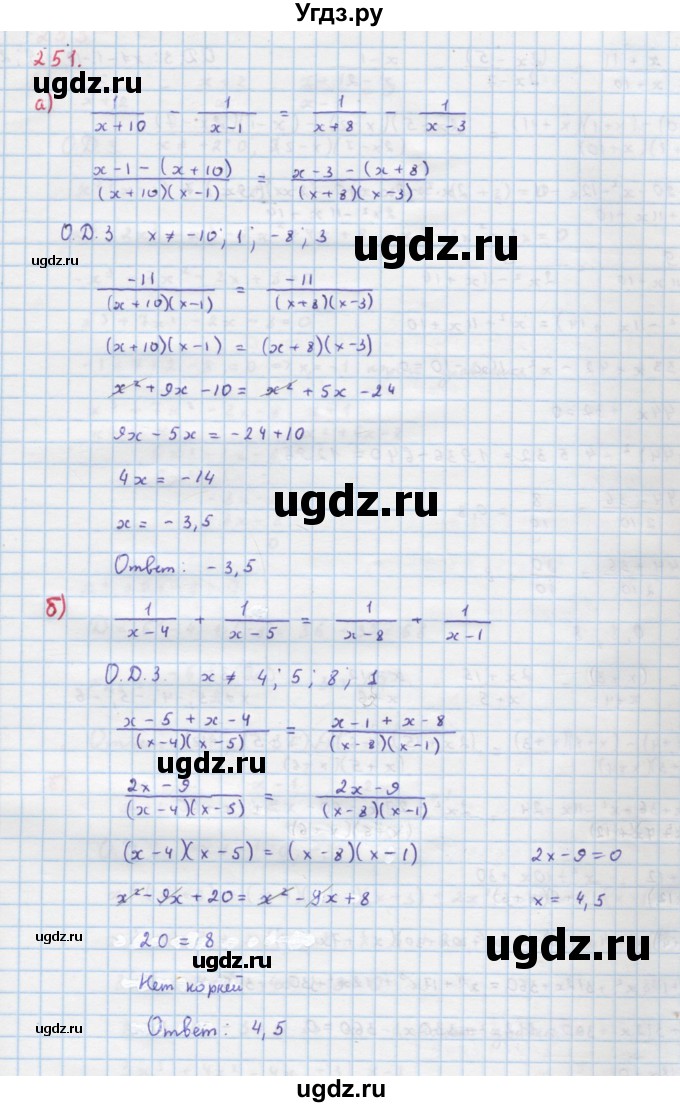 Угдз.ру
251.
ugdz.ru
а) 1/(x+10) - 1/(x-1) = 1/(x+8) - 1/(x-3)
(x-1-(x+10))/((x+10)(x-1)) = (x-3-(x+8))/((x+8)(x-3))
О.Д.З x ≠ -10; 1; -8; 3
ugdz.ru
ugdz.ru
-11/((x+10)(x-1)) = -11/((x+8)(x-3))
(x+10)(x-1) = (x+8)(x-3)
x²+9x-10 = x²+5x-24
9x-5x = -24+10
4x = -14
ugdz.ru
x = -3,5
Ответ: -3,5
б) 1/(x-4) + 1/(x-5) = 1/(x-8) + 1/(x-1)
О.Д.З. x ≠ 4; 5; 8; 1
(x-5+x-4)/((x-4)(x-5)) = (x-1+x-8)/((x-8)(x-1))
ugdz.ru
(2x-9)/((x-4)(x-5)) = (2x-9)/((x-8)(x-1))
(x-4)(x-5) = (x-8)(x-1) 2x-9=0
x²-9x+20 = x²-9x+8 x = 4,5
ugdz.ru
20 = 8
ugdz.ru
Нет корней
Ответ: 4,5
ugdz.ru